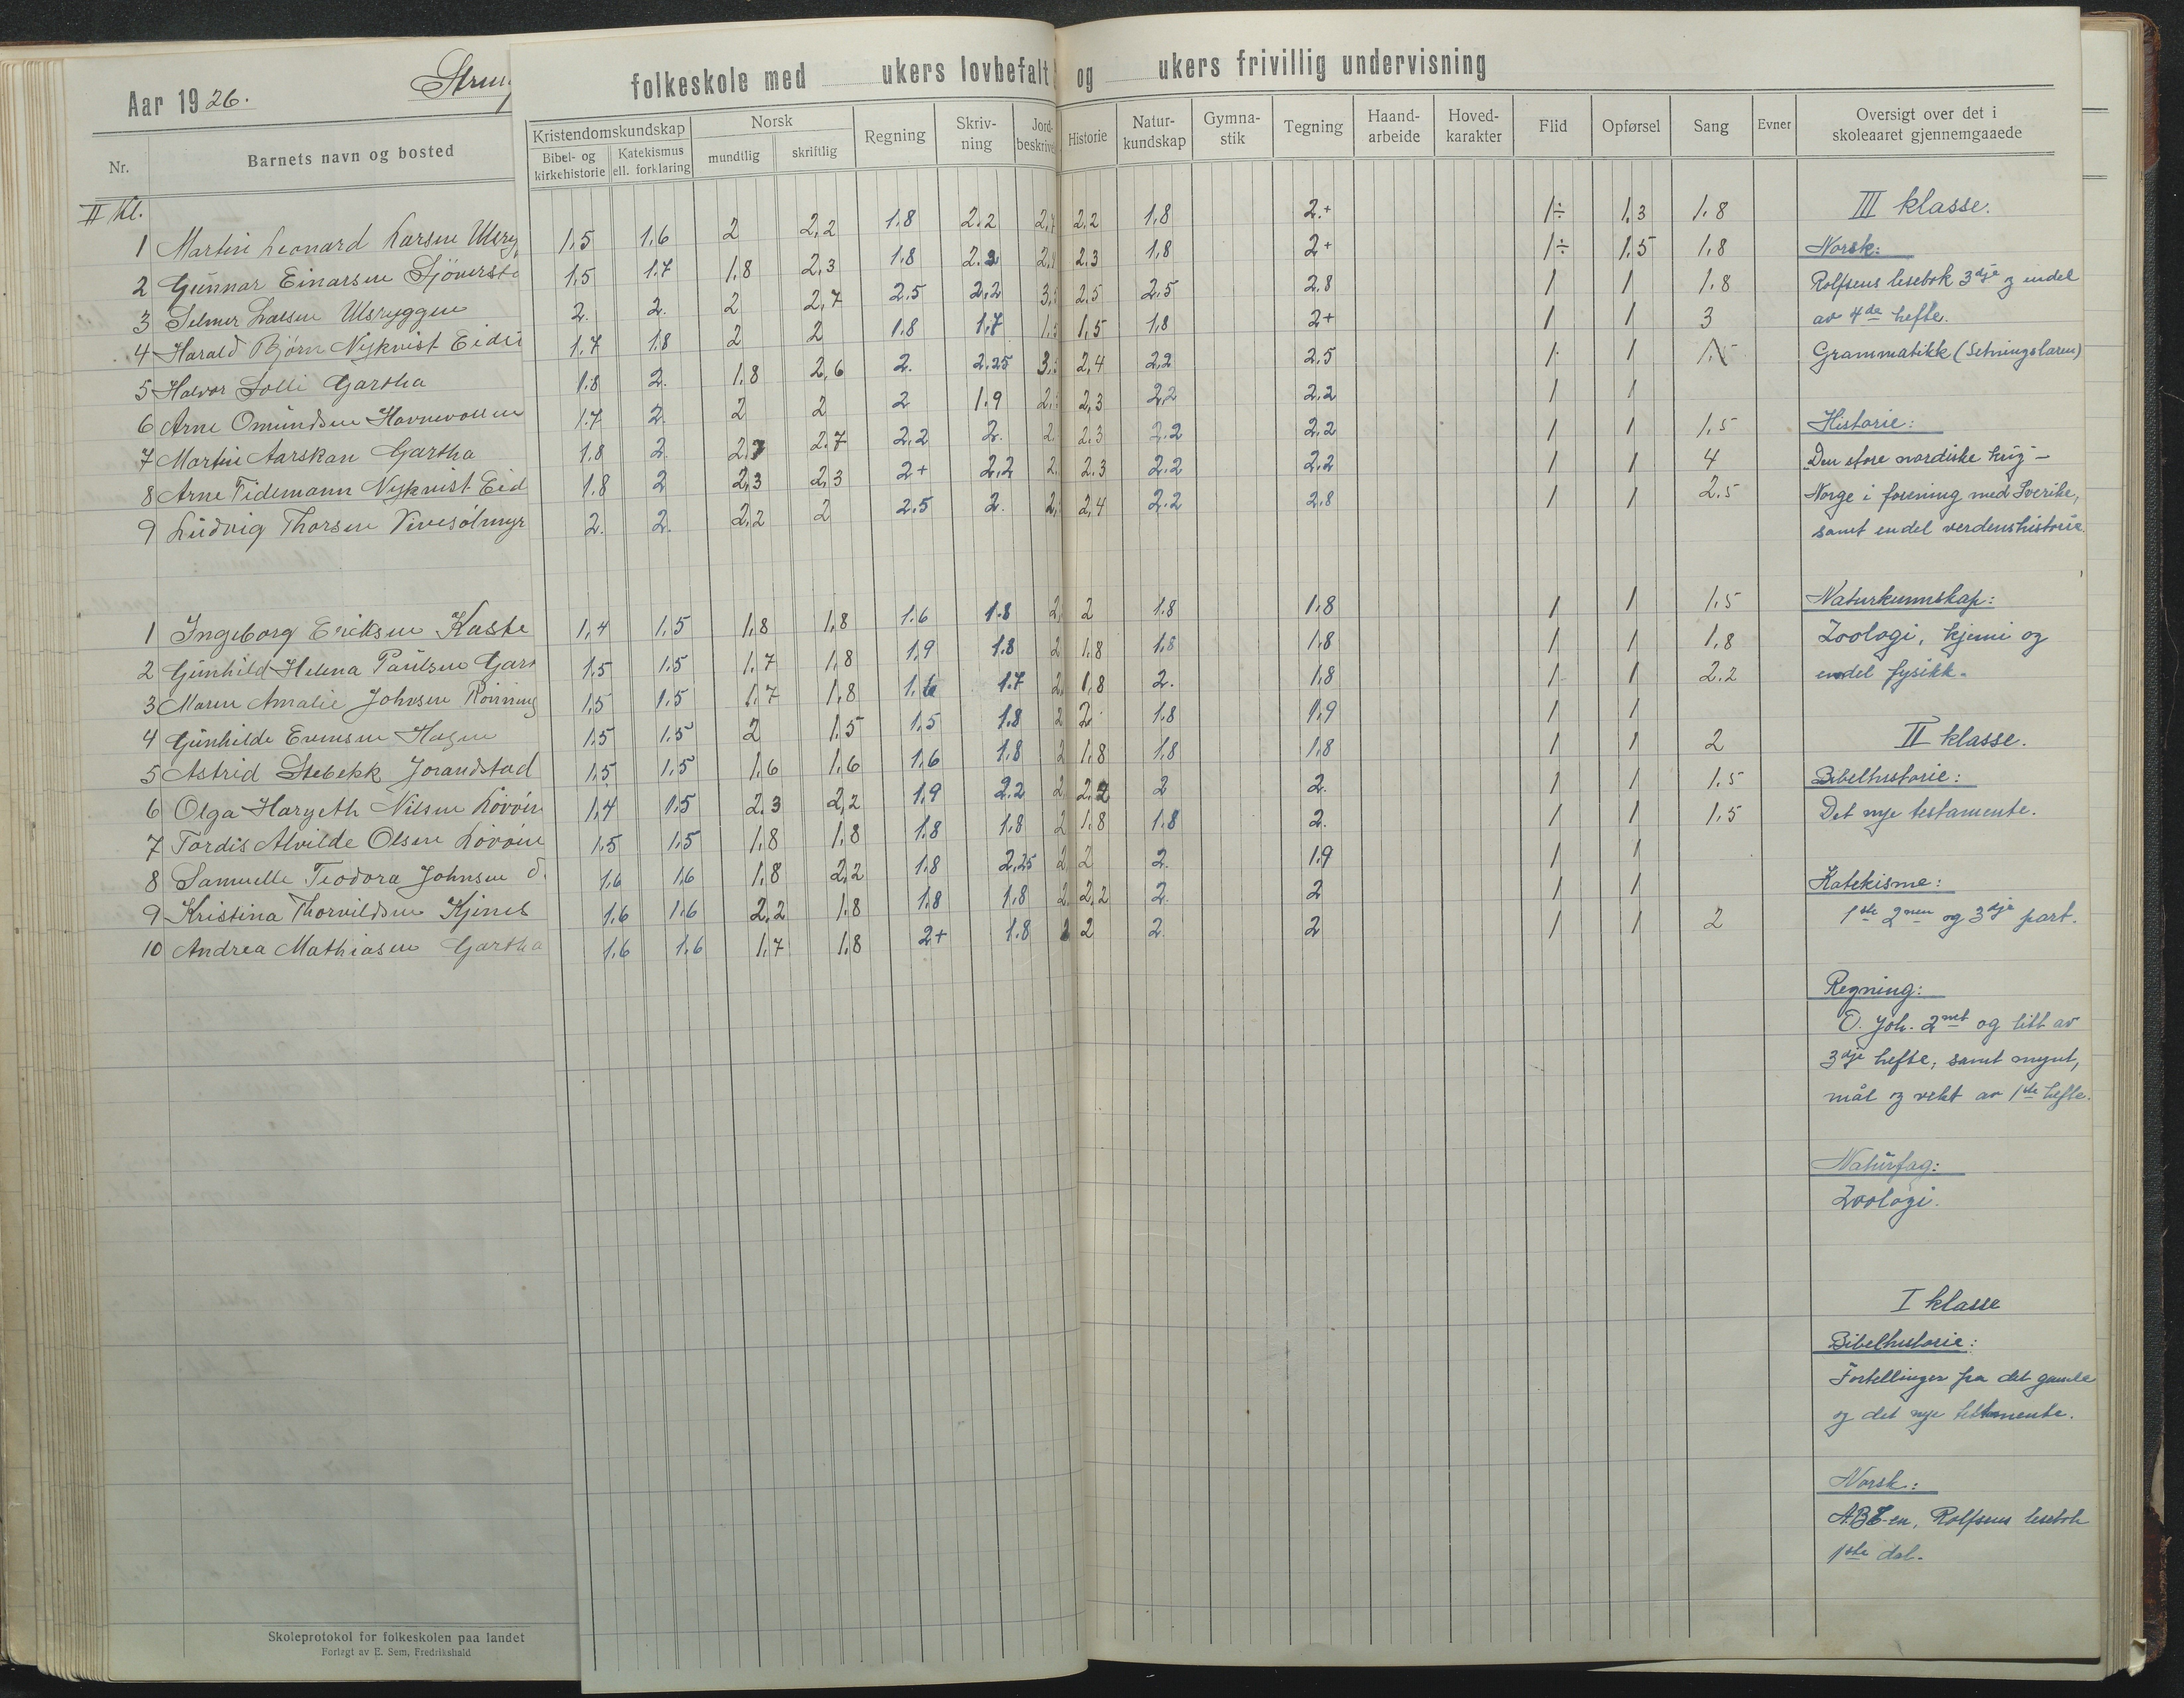 Aar 1926.
folkeskole med ukers lovbefalt og ukers frivillig undervisning
Nr. Barnets navn og bosted Kristendomskundskap Bibel- og kirkehistorie Katekismus ell. forklaring Norsk mundtlig skriftlig Regning Skriv- ning Jord- beskrive Historie Natur- kundskap Gymna- stik Tegning Haand- arbeide Hoved- karakter Flid Opførsel Sang Evner Oversigt over det i skoleaaret gjennemgaaede
II Kl.
1 Martin Leonard Larsen 1,5 1,6 2 2,2 1,8 2.2 2.2 1,8 2.+ 1÷ 1,3 1,8
2 Gunnar Einarsen 1,5 1.7 1,8 2,3 1.8 2.3 1,8 2+ 1÷ 1,5 1,8
3 Selmer Larsen Ulsryggen 2. 2. 2 2,7 2.5 2,2 2,5 2,5 2.8 1 1 1.8
4 Harald Bjørn Nykvist 1.7 1.8 2 2 1.8 1,7 1,5 1,8 2+ 1 1 3
5 Halvor Solli Gartha 1.8 2. 1,8 2,6 2. 2.25 2,4 2,2 2,5 1 1
6 Arne Omundsen 1.7 2. 2 2 2 1.9 2,3 2,2 2.2 1 1
7 Martin Aarskan Gartha 1.8 2. 2.7 2.2 2. 2.3 2.2 2.2 1 1 1,5
8 Arne Tidemann Nykvist Eid 1.8 2 2,3 2,3 2+ 2,2 2.3 2.2 2,2 1 1 4
9 Ludvig Thorsen 2. 2. 2,2 2 2.5 2. 2,4 2.2 2,8 1 1 2.5
1 Ingeborg Eriksen Kaste 1,4 1,5 1,8 1,8 1.6 1.8 2 1.8 1,8 1 1 1.5
2 Gunhild Helena Paulsen 1.5 1.5 1.7 1,8 1,9 1.8 1.8 1.8 1,8 1 1 1,8
3 Maren Amalie Johnsen 1,5 1.5 1.7 1,8 1,6 1.7 1,8 2. 1,8 1 1 2.2
4 Gunhilde Evensen Hagen 1.5 1.5 2 1.5 1,5 1.8 2 1.8 1,9 1 1
5 Astrid Stebekk Jorandstad 1,5 1,5 1,6 1,6 1,6 1,8 1.8 1,8 1,8 1 1 2
6 Olga Nilsen 1,4 1.5 2.3 2,2 1,9 2.2 2.2 2 2. 1 1 1.5
7 Tordis Alvilde Olsen 1,5 1,5 1,8 1,8 1.8 1,8 1.8 1.8 2. 1 1 1,5
8 Teodora Johnsen 1.6 1,6 1,8 2,2 1,8 2,25 2 2. 1.9 1 1
9 Kristina Thorvildsen 1.6 1.6 2.2 1.8 1.8 1,8 2,2 2. 2 1 1
10 Andrea Mathiasen Gartha 1.6 1.6 1,7 1,8 2+ 1.8 2 2. 2 1 1 2
III klasse.
Norsk:
Rolfsens lesebok 3dje og endel
av 4de hefte.
Grammatikk (Setningslæren)
Historie:
Den store nordiske krig –
Norge i forening med Sverike,
samt endel verdenshistorie.
Naturkunnskap:
Zoologi, kjemi og
endel fysikk.
II klasse.
Bibelhistorie:
Det nye testamente.
Katekisme:
1ste 2nen og 3dje part.
Regning:
O. Joh. 2net og litt av
3dje hefte, samt mynt,
mål og vekt av 1ste hefte.
Naturfag:
Zoologi.
I klasse
Bibelhistorie:
Fortellinger fra det gamle
og det nye testamente.
Norsk:
ABC-en, Rolfsens lesebok
1ste del.
Skoleprotokol for folkeskolen paa landet
Forlagt av E. Sem, Fredrikshald